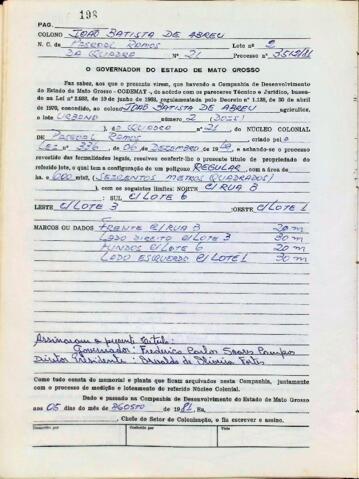 198
PAG.
COLONO JOÃO BATISTA DE ABREU
N. C. de PASCOAL RAMOS Lote nº 2
DA QUADRA Nº 21 Processo nº 3513/81
O GOVERNADOR DO ESTADO DE MATO GROSSO
Faz saber, aos que o presente virem, que havendo a Companhia de Desenvolvimento
do Estado de Mato Grosso - CODEMAT, de acordo com os pareceres Técnico e Jurídico, basea-
do na Lei nº 2.083, de 19 de junho de 1963, regulamentada pelo Decreto nº 1.138, de 30 de abril
de 1970, concedido, ao colono JOÃO BATISTA DE ABREU agricultor,
o lote URBANO número 2 (DOIS)
), da QUADRA nº 21, do NÚCLEO COLONIAL
de PASCOAL RAMOS criado pela
LEI nº 336, de 06 de DEZEMBRO de 1949, e achando-se o processo
revestido das formalidades legais, resolveu conferir-lhe o presente título de propriedade do
referido lote, o qual tem a configuração de um polígono REGULAR, com a área de
ha. 600 m2, (SEISCENTOS METROS QUADRADOS)
), com os seguintes limites: NORTE C/ RUA 8
SUL C/ LOTE 6
LESTE C/ LOTE 3 OESTE C/ LOTE 1
MARCOS OU DADOS FRENTE C/ RUA 8 20 m
LADO DIREITO C/ LOTE 3 30 m
FUNDOS C/ LOTE 6 20 m
LADO ESQUERDO C/ LOTE 1 30 m
Assinaram o presente título:
Governador: Frederico Carlos Soares Campos
Diretor Presidente: de Oliveira Fortes
Como tudo consta do memorial e planta que ficam arquivados nesta Companhia, juntamente
com o processo de medição e loteamento do referido Núcleo Colonial.
Dado e passado na Companhia de Desenvolvimento do Estado de Mato Grosso
aos 05 dias do mês de AGOSTO de 1981. Eu,
, Chefe do Setor de Colonização, o fiz escrever e assino.
Escriturado por Conferido por Visto